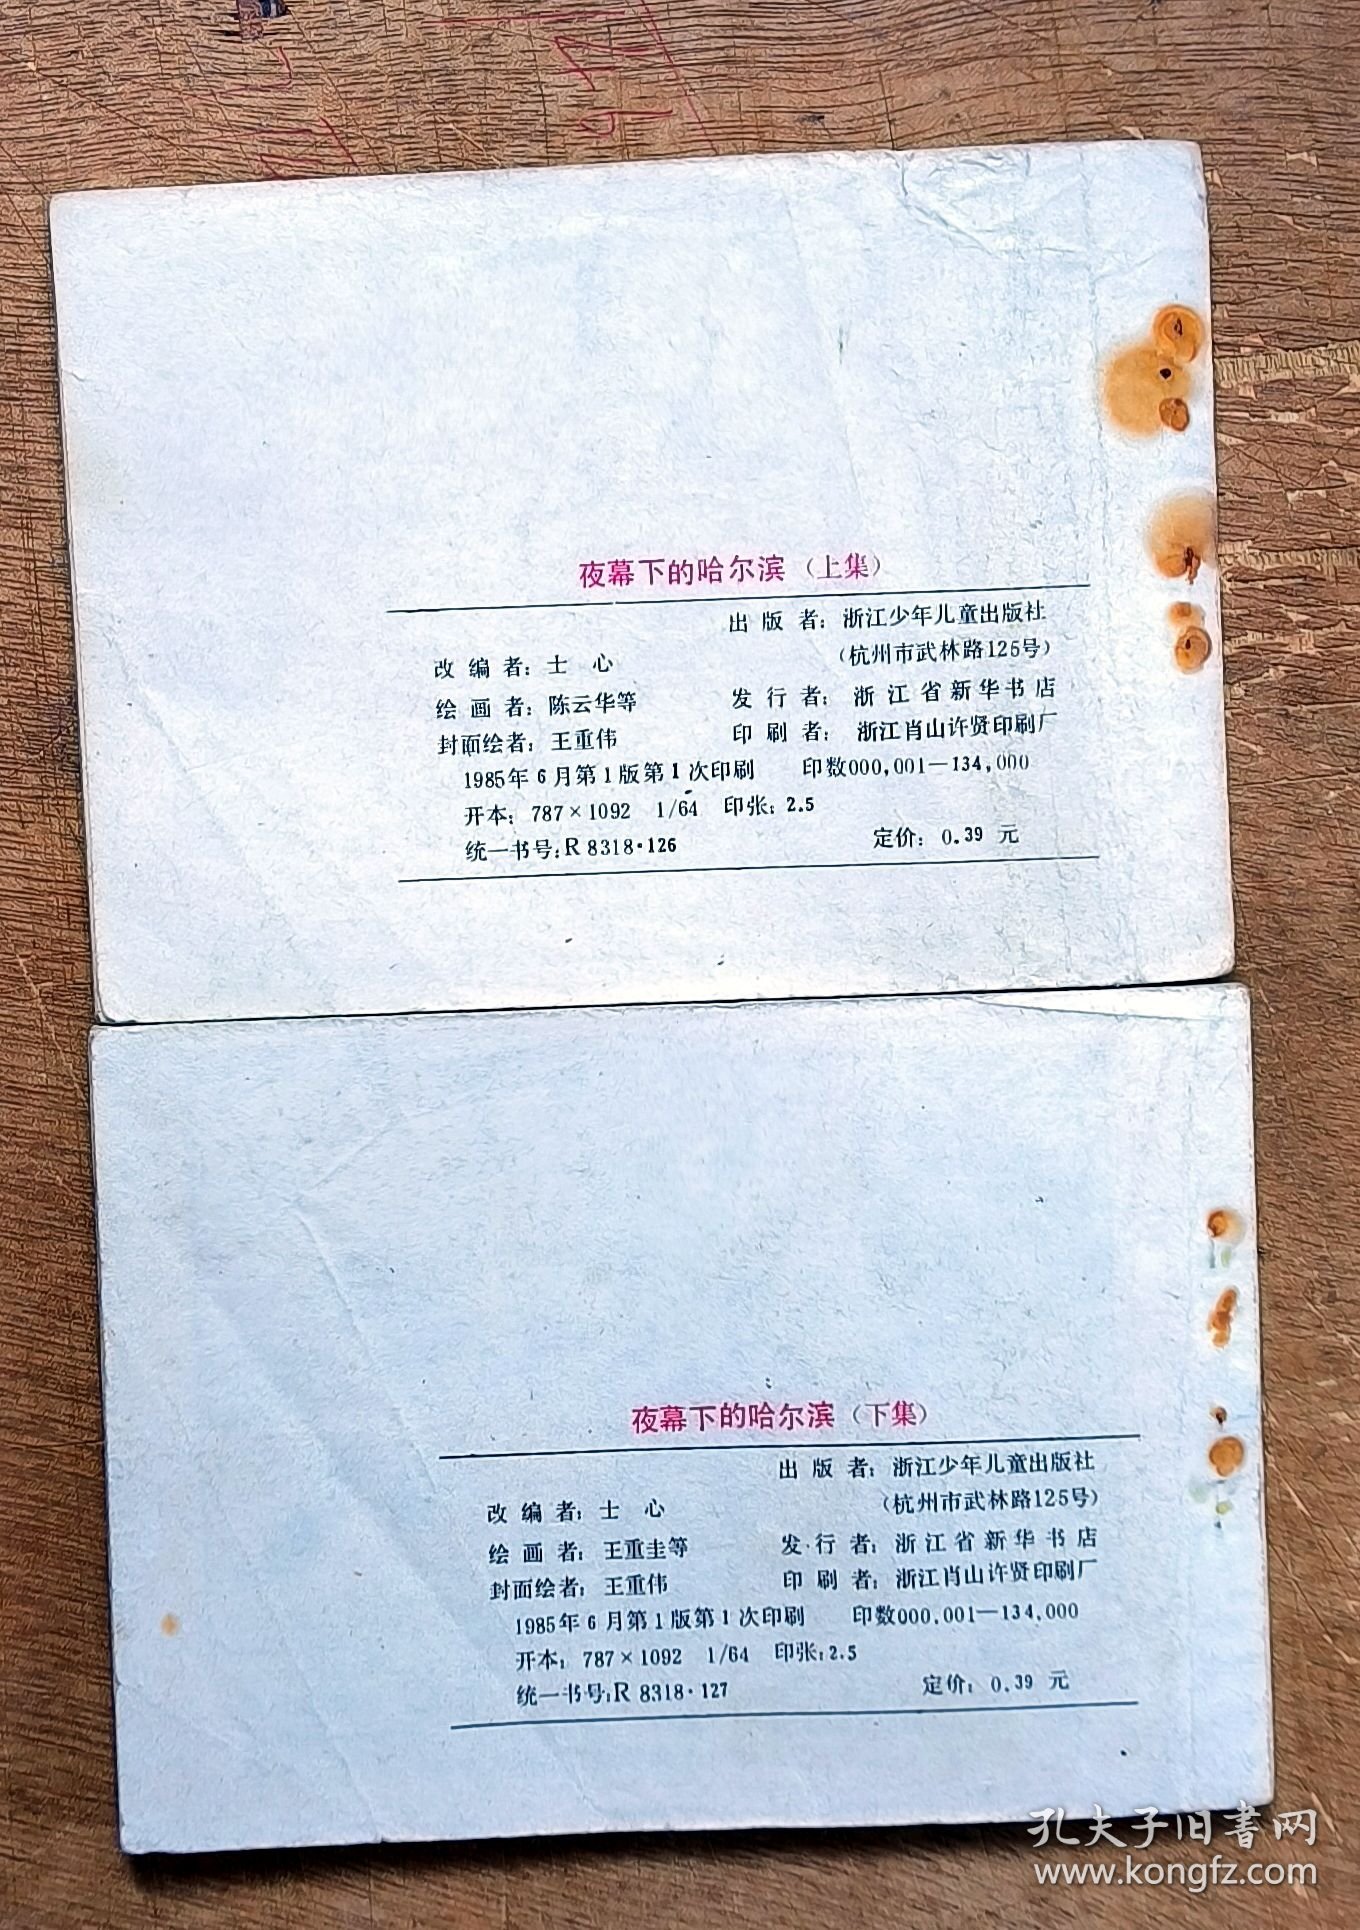 夜幕下的哈尔滨（上集）
出版者：浙江少年儿童出版社
（杭州市武林路125号）
改编者：士心
绘画者：陈云华等
发行者：浙江省新华书店
封面绘者：王重伟
印刷者：浙江肖山许贤印刷厂
1985年6月第1版第1次印刷 印数000,001—134,000
开本：787×1092 1/64 印张：2.5
统一书号：R 8318·126 定价：0.39 元
夜幕下的哈尔滨（下集）
出版者：浙江少年儿童出版社
（杭州市武林路125号）
改编者：士心
绘画者：王重圭等
发行者：浙江省新华书店
封面绘者：王重伟
印刷者：浙江肖山许贤印刷厂
1985年6月第1版第1次印刷 印数000,001—134,000
开本：787×1092 1/64 印张：2.5
统一书号：R 8318·127 定价：0.39 元
孔夫子旧书网
www.kongfz.com